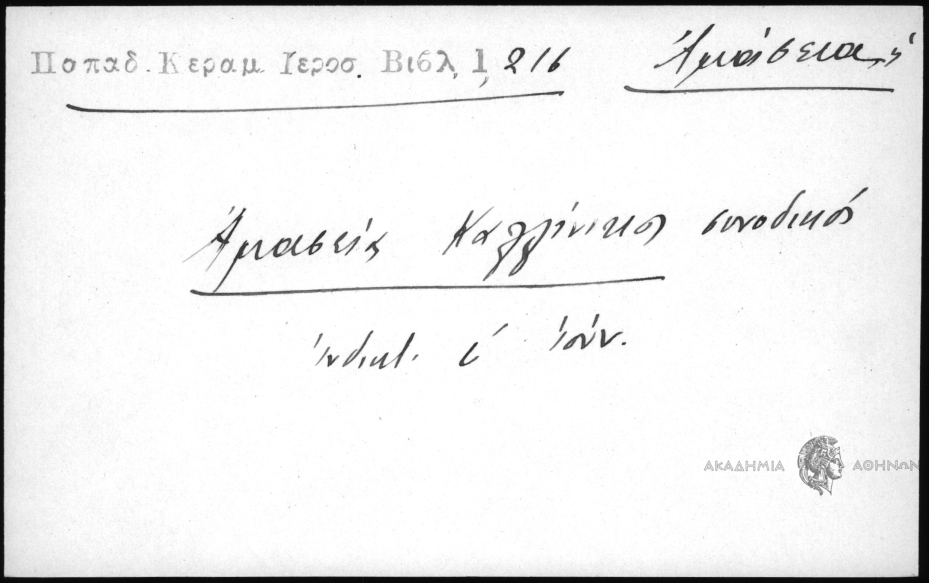 Παπαδ. Κεραμ Ιεροσ. Βιβλ, 1, 216
Ἀμάσεια, ἡ
Ἀμασείας Καλλίνικος συνοδικός
ἰνδικτ. ι΄ Ἰούν.
ΑΚΑΔΗΜΙΑ ΑΘΗΝΩΝ